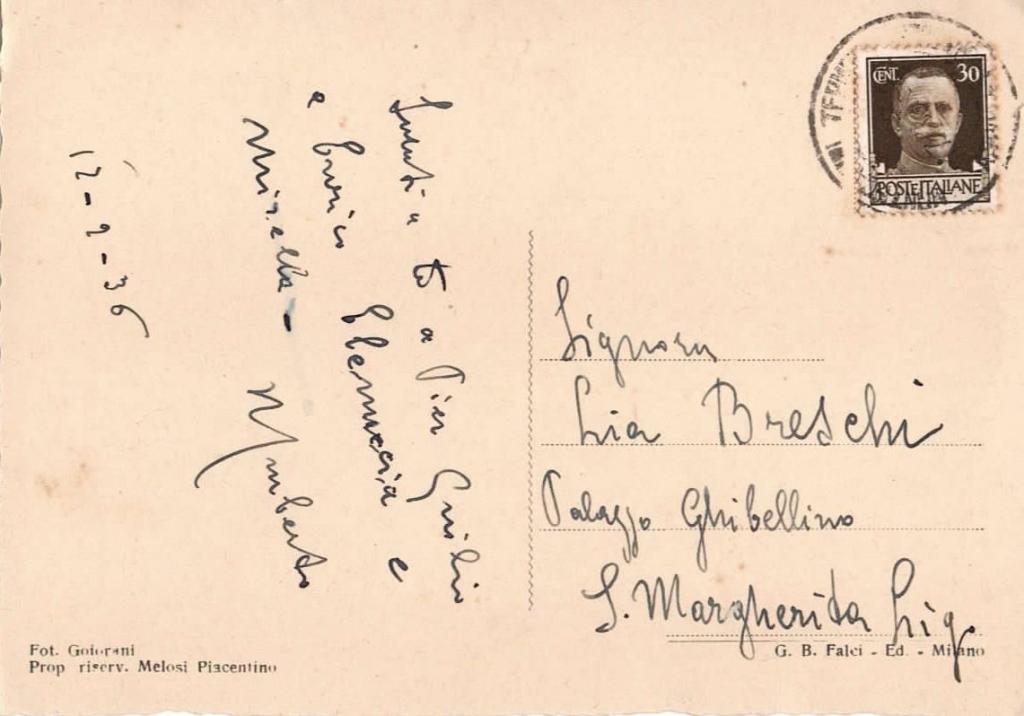 CENT. 30
POSTE ITALIANE
Saluti a te a Pier Giulio
a Enrico
e
Mirella -
Umberto
12-9-36
Signora
Lia Breschi
Palazzo Ghibellino
S. Margherita Lig.
Fot. Goiorani
Prop riserv. Melosi Piacentino
G. B. Falci - Ed. - Milano